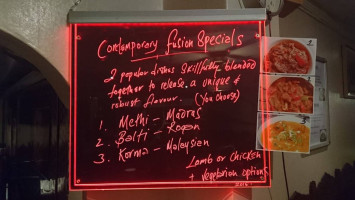 Contemporary fusion Specials
2 popular dishes skillfully blended
together to release a unique &
robust flavour. (You Choose)
1. Methi - Madras
2. Balti - Rogan
3. Korma - Malaysian
Lamb or Chicken
+ Vegetarian options